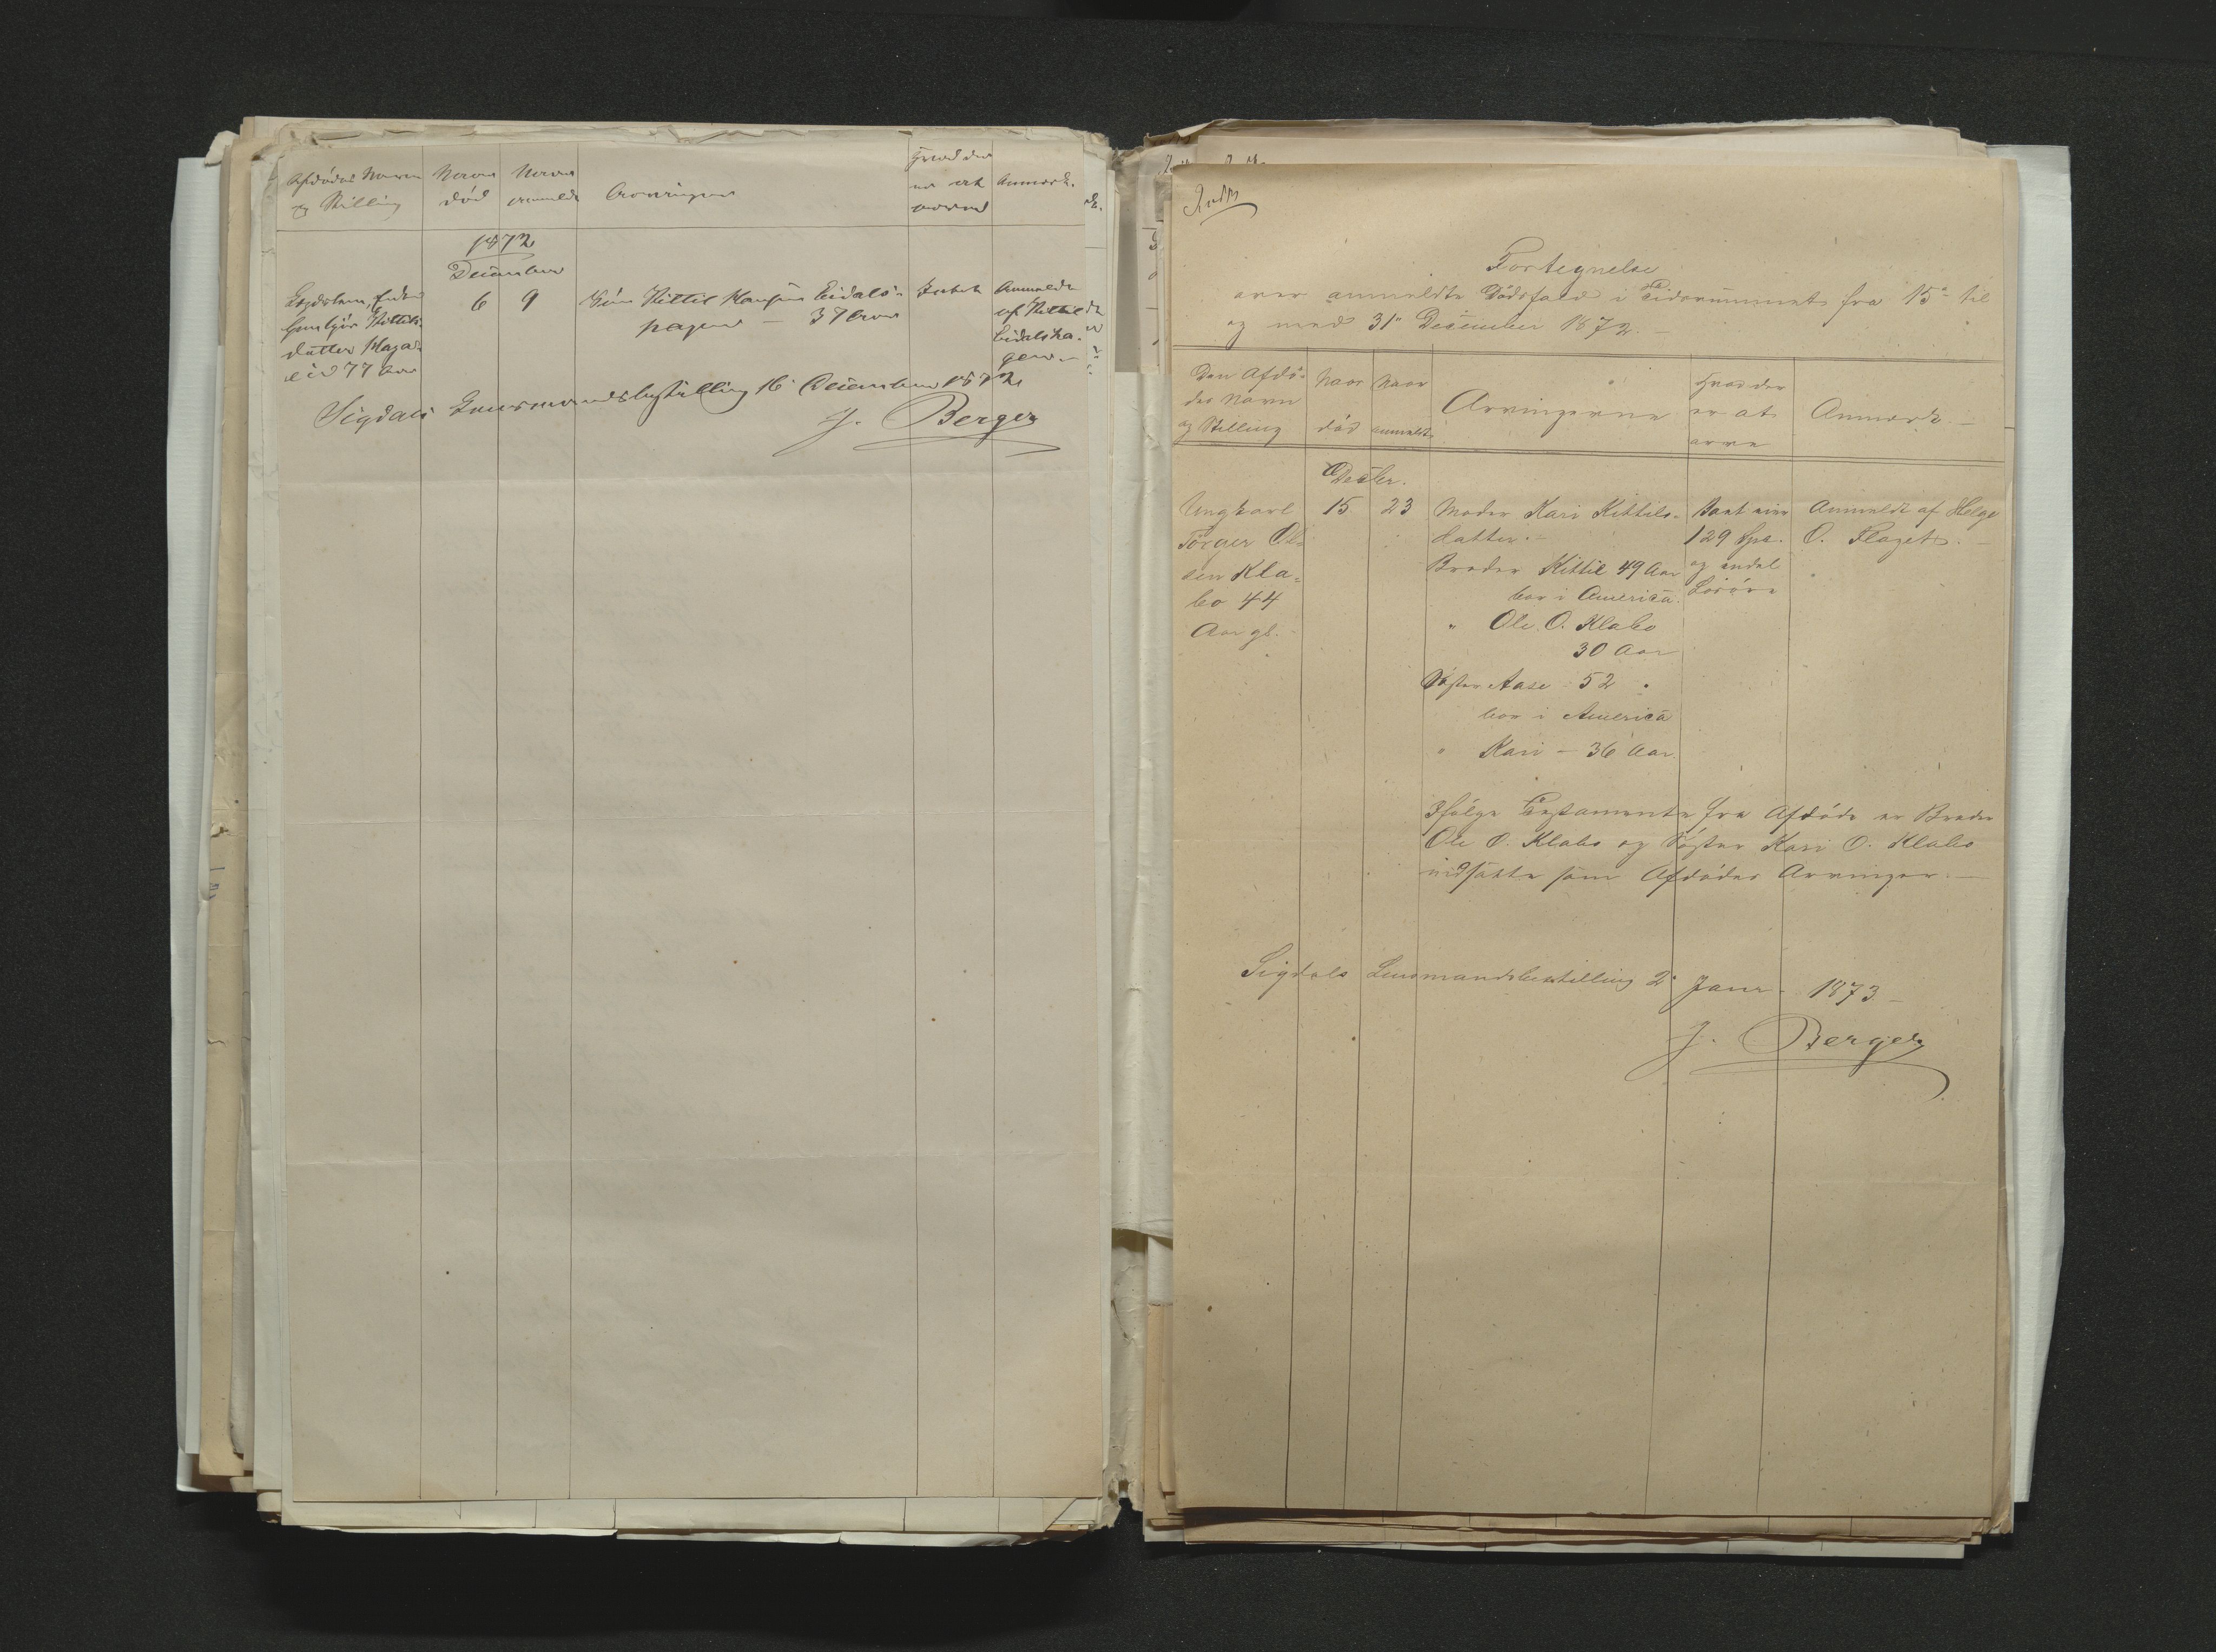 Afdødes Navn
og Stilling
Naar
død
Naar
anmeldt
Arvinger
Hvad der
er at
arve
Anmærk.
1872
December
Enke
Gunbjør Kittils-
datter Haga-
eie 77 Aar
6
9
Søn Kittil Hansen Eidals-
hagen — 37 Aar
Intet
Anmeldt
af Kittil
Eidalsha-
gen.-
Sigdals Lensmandsbestilling 16 December 1872
J. Berger
Fortegnelse
over anmeldte Dødsfald i Tidsrummet fra 15de til
og med 31te December 1872. —
Den Afdø-
des Navn
og Stilling
Naar
død
Naar
anmeldt
Arvingerne
Hvad der
er at
arve
Anmærk. —
Decbr.
Ungkarl
Torger Ol-
sen Kla-
bo 44
Aar gl.
15
23
Moder Kari Kittils-
datter. -
Broder Kittil 49 Aar
bor i America.
" Ole O. Klabo
30 Aar
Søster Aase - 52 "
bor i America
" Kari — 36 Aar.
129 Spd.
og endel
Løsøre
Anmeldt af Helge
O. Flaget. —
Ifølge Testamente fra Afdøde er Broder
Ole O. Klabo og Søster Kari O. Klabo
indsatte som Afdødes Arvinger. —
Sigdals Lensmandsbestilling 2 Janr. 1873 —
J. Berger